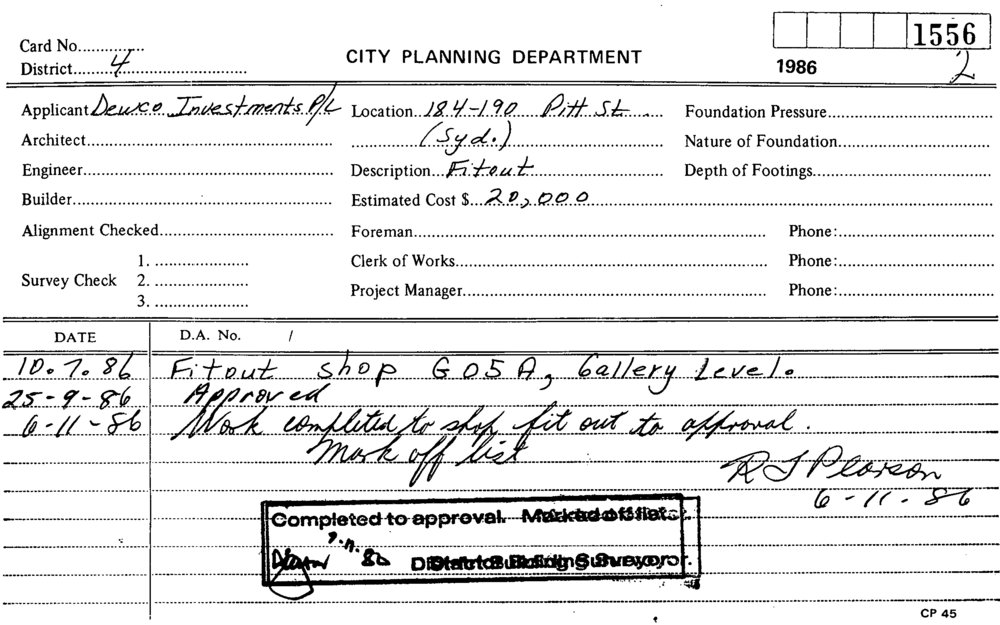 1556
Card No.
CITY PLANNING DEPARTMENT
1986
2
District 4
Applicant Dewco Investments P/L Location 184-190 Pitt St Foundation Pressure
Architect (Syd.) Nature of Foundation
Engineer Description Fitout Depth of Footings
Builder Estimated Cost $ 20,000
Alignment Checked Foreman Phone:
Survey Check 1. Clerk of Works Phone:
2.
3. Project Manager Phone:
DATE D.A. No. /
10.7.86 Fitout shop G05A, Gallery Level.
25-9-86 Approved
6-11-86 Work completed to shop fit out to approval.
Mark off list
R J Pearson
6-11-86
Completed to approval. Marked off list.
District Building Surveyor.
CP 45